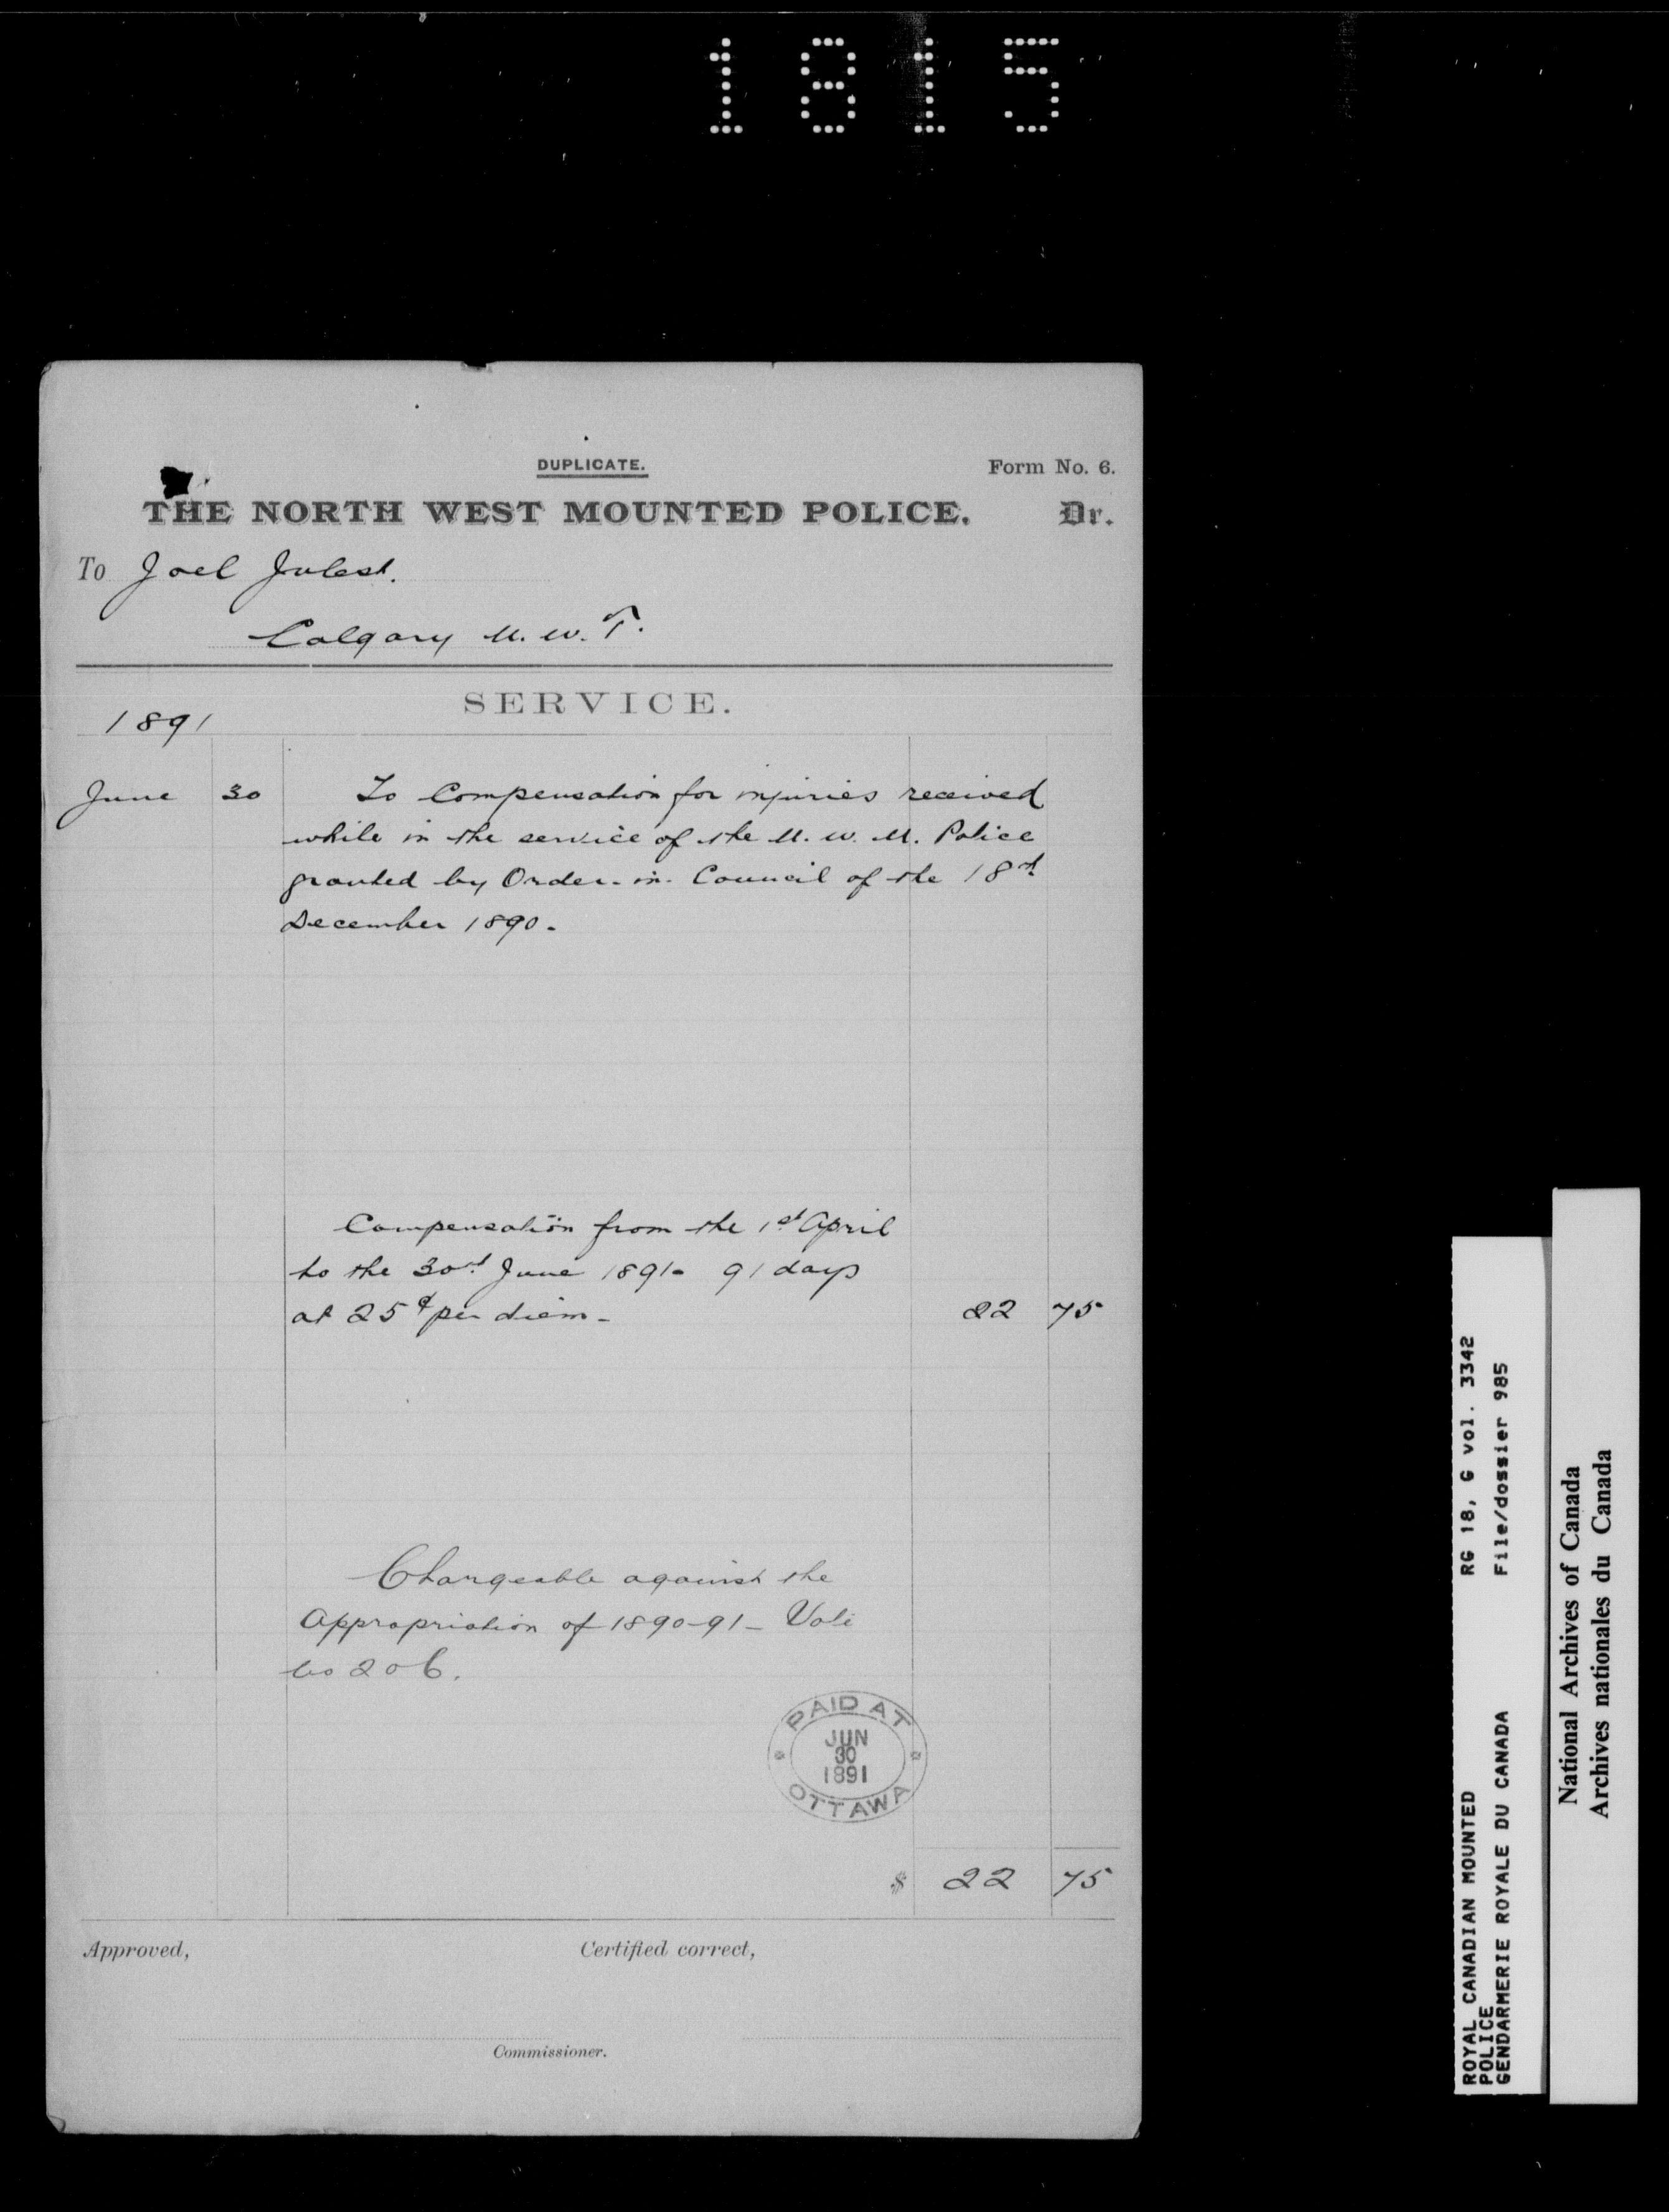 1815
DUPLICATE.
Form No. 6.
THE NORTH WEST MOUNTED POLICE. Dr.
To Joel Julest.
Calgary N. W. T.
SERVICE.
1891
June 30 To Compensation for injuries received
while in the service of the N. W. M. Police
granted by Order-in-Council of the 18th
December 1890.
Compensation from the 1st April
to the 30th June 1891- 91 days
at 25¢ per diem - 22 75
Chargeable against the
Appropriation of 1890-91 - Vote
No 206.
PAID AT
JUN
30
1891
OTTAWA
$ 22 75
Approved, Certified correct,
Commissioner.
ROYAL CANADIAN MOUNTED RG 18, G vol. 3342
POLICE
GENDARMERIE ROYALE DU CANADA File/dossier 985
National Archives of Canada
Archives nationales du Canada